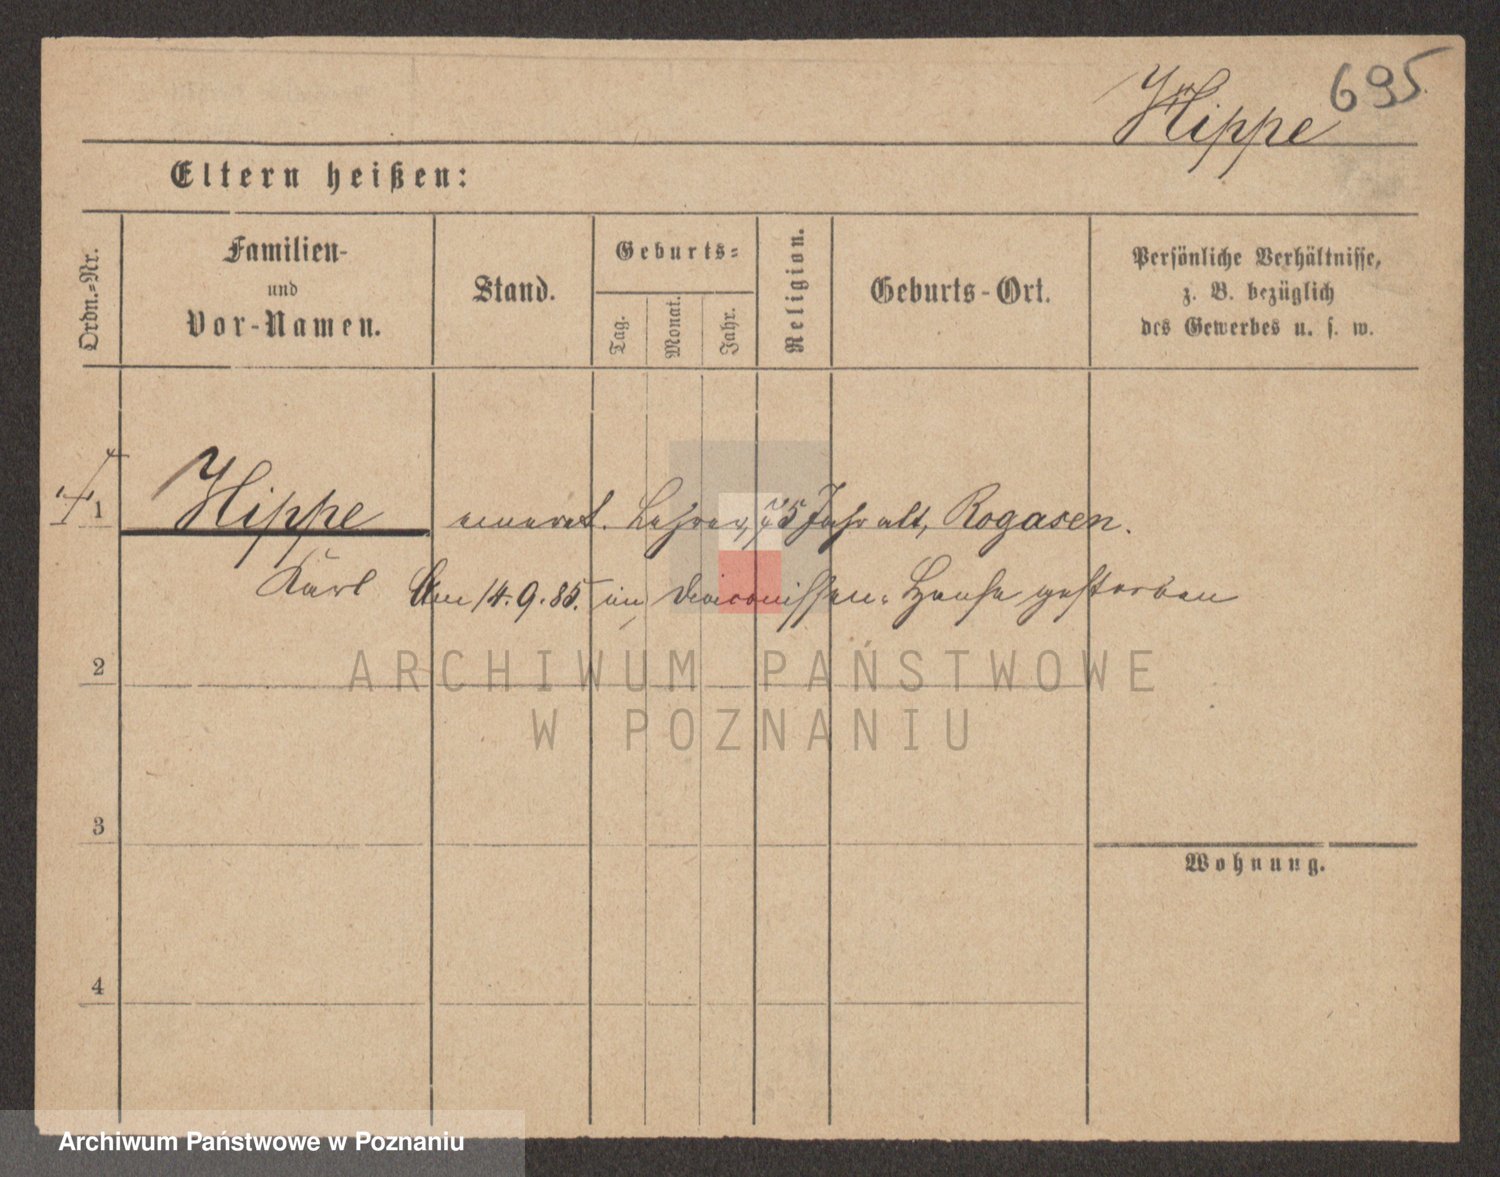 695
Hippe
Eltern heißen:
Ordn.-Nr.
Familien-
und
Vor-Namen.
Stand.
Geburts-
Tag.
Monat.
Jahr.
Religion.
Geburts-Ort.
Persönliche Verhältnisse,
z. B. bezüglich
des Gewerbes u. s. w.
1 Hippe emerit. Lehrer, 75 Jahr alt, Rogasen.
Karl Am 14.9.85. im Diaconissen-Hause gestorben
2
3
4
Wohnung.
ARCHIWUM PAŃSTWOWE
W POZNANIU
Archiwum Państwowe w Poznaniu